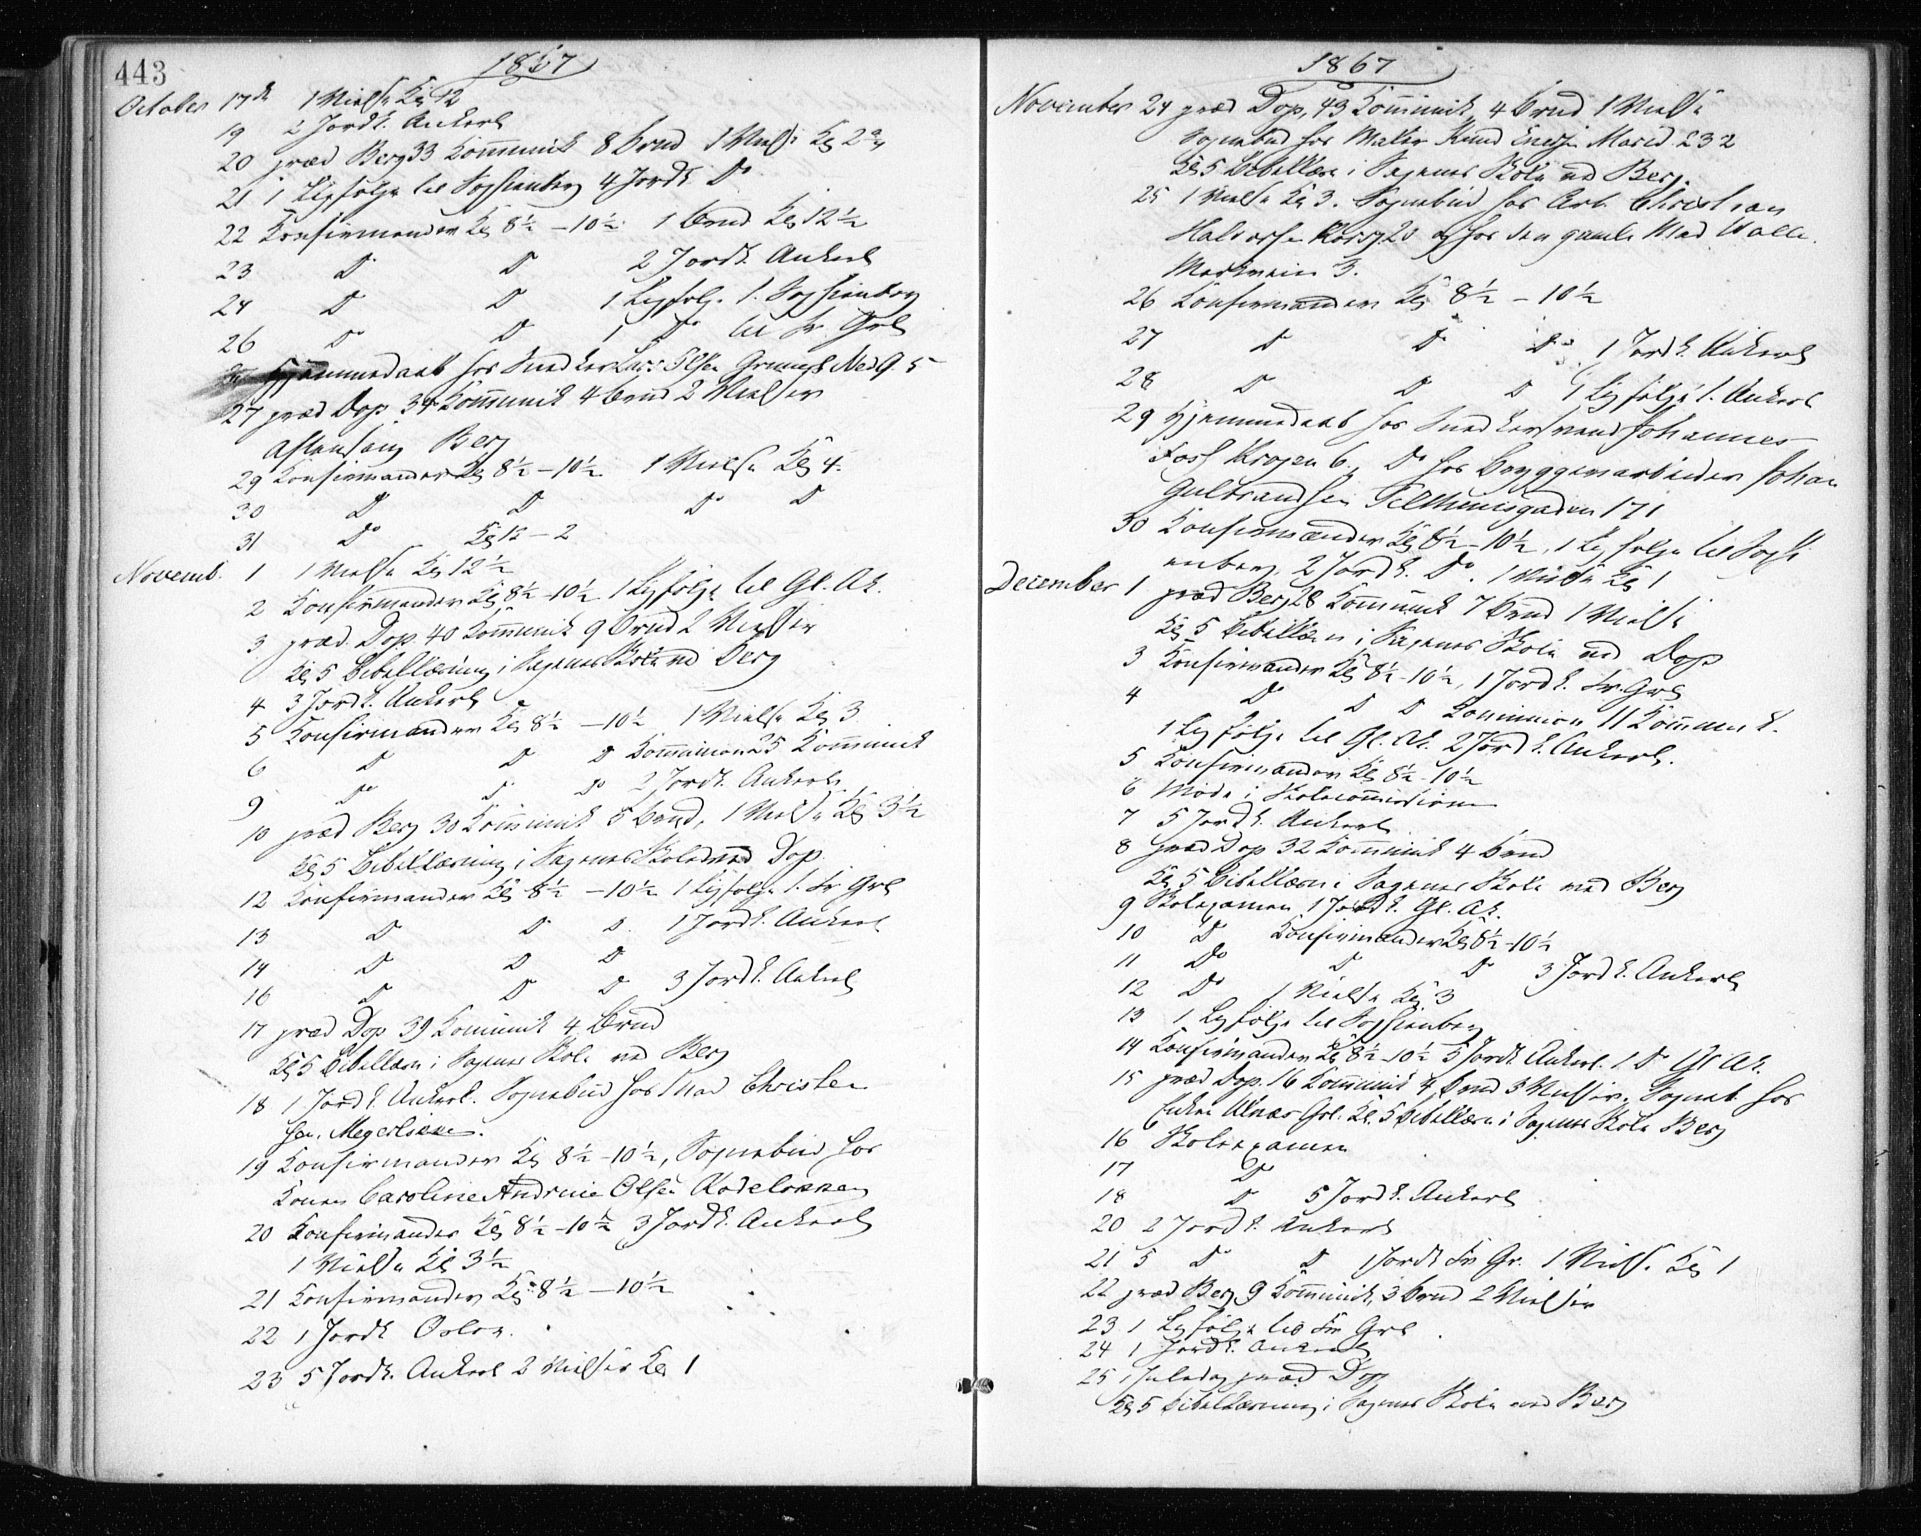 443
1867
October 17de 1 Vielse Kl 12
19 2 Jordk. Ankerl
20 præd Berg 33 Kommunik 8 Brnd 1 Vielse Kl 2
21 1 Ligfølge til Sophienberg 4 Jordk Do
22 Konfirmander Kl 8½ – 10½ 1 Brnd Kl 12½
23 Do Do 2 Jordk. Ankerl
24 Do Do 1 Ligfølge t. Sophienberg
26 Do Do 1 Do til Fr. Grl
Hjemmedaab hos Snedker Lars Olsen 5
27 præd Dop 34 Kommunik 4 Brnd 2 Vielser
Aftensang Berg
29 Konfirmander Kl 8½ – 10½ 1 Vielse Kl 4
30 Do Do Do Do
31 Do Kl 12 – 2
Novemb. 1 1 Vielse Kl 12½
2 Konfirmander Kl 8½ – 10½ 1 Ligfølge til Gl. Ak.
3 præd. Dop. 40 Kommunik 9 Brnd 2 Vielser
Kl 5 Bibellæsning i Sagenes Skole ved Berg
4 3 Jordk. Ankerl
5 Konfirmander Kl 8½ – 10½ 1 Vielse Kl 3
6 Do Do Do Kommunion 25 Kommunik
9 Do Do Do 2 Jordk. Ankerl.
10 præd Berg 30 Kommunik 5 Brnd, 1 Vielse Kl 3½
Kl 5 Bibellæsning i Sagenes Skole ved Dop.
12 Konfirmander Kl 8½ – 10½ 1 Ligfølge t. Fr Grl
13 Do Do Do 1 Jordk. Ankerl
14 Do Do Do
16 Do Do Do 3 Jordk. Ankerl
17 præd Dop 39 Kommunik 4 Brnd
Kl 5 Bibellæsn i Sagenes Skole ved Berg
18 1 Jordk. Ankerl. Sognebud hos Mad Christen
sen. Megerløkken.
19 Konfirmander Kl 8½ – 10½, Sognebud hos
Konen Caroline Andrine Olsen Rodeløkken
20 Konfirmander Kl 8½ – 10½ 3 Jordk. Ankerl
1 Vielse Kl 3½
21 Konfirmander Kl 8½ – 10½
22 1 Jordk Oslo.
23 5 Jordk. Ankerl 2 Vielser Kl 1
1867
November 24 præd Dop, 43 Kommunik, 4 Brnd 1 Vielse
Sognebud hos Maler Knud 232
Kl 5 Bibellæsn i Sagenes Skole ved Berg.
25 1 Vielse Kl 3. Sognebud hos Arb Christian
Halvorsen 20 og hos den gamle Mad Walle.
Markveien 3.
26 Konfirmander Kl 8½ – 10½
27 Do Do Do 1 Jordk. Ankerl
28 Do Do Do 1 Ligfølge t. Ankerl
29 Hjemmedaab hos Snedkersvend Johannes
Krogen 6. Do hos Bryggeriarbeider Johan
Gulbrandsen Telthusgaden 171
30 Konfirmander Kl 8½ – 10½, 1 Ligfølge til Sophi
enberg, 2 Jordk. Do. 1 Vielse Kl 1
December 1 præd Berg 28 Kommunik 7 Brnd 1 Vielse
Kl 5 Bibellæsn i Sagenes Skole ved Dop
3 Konfirmander Kl 8½ – 10½, 1 Jordk. Fr. Grl
4 Do Do Do Kommunion 11 Kommunik.
1 Ligfølge til Gl. Ak. 2 Jordk. Ankerl.
5 Konfirmander Kl 8½ – 10½
6 Møde i Skolecommissionen
7 5 Jordk. Ankerl
8 præd Dop 32 Kommunik 4 Brnd
Kl 5 Bibellæsn i Sagenes Skole ved Berg
9 Skolexamen 1 Jordk. Gl. Ak.
10 Do Konfirmander Kl 8½ – 10½
11 Do Do Do 3 Jordk. Ankerl
12 Do 1 Vielse Kl 3
13 1 Ligfølge til Sophienberg
14 Konfirmander Kl 8½ – 10½ 5 Jordk Ankerl. 1 Do Gl Ak.
15 præd Dop. 16 Kommunik 4 Brnd 3 Vielser. Sogneb. hos
Enken Grl. Kl. 5 Bibellæsn i Sagenes Skole Berg
16 Skolexamen
17 Do
18 Do 5 Jordk. Ankerl
20 2 Jordk. Ankerl
21 5 Do Do 1 Jordk Fr Gr. 1 Vielse Kl 1
22 præd Berg 9 Kommunik, 3 Brnd 2 Vielser
23 1 Ligfølge til Fr Grl
24 1 Jordk. Ankerl
25 Juledag præd Dop
Kl 5 Bibellæsning i Sagenes Skole ved Berg